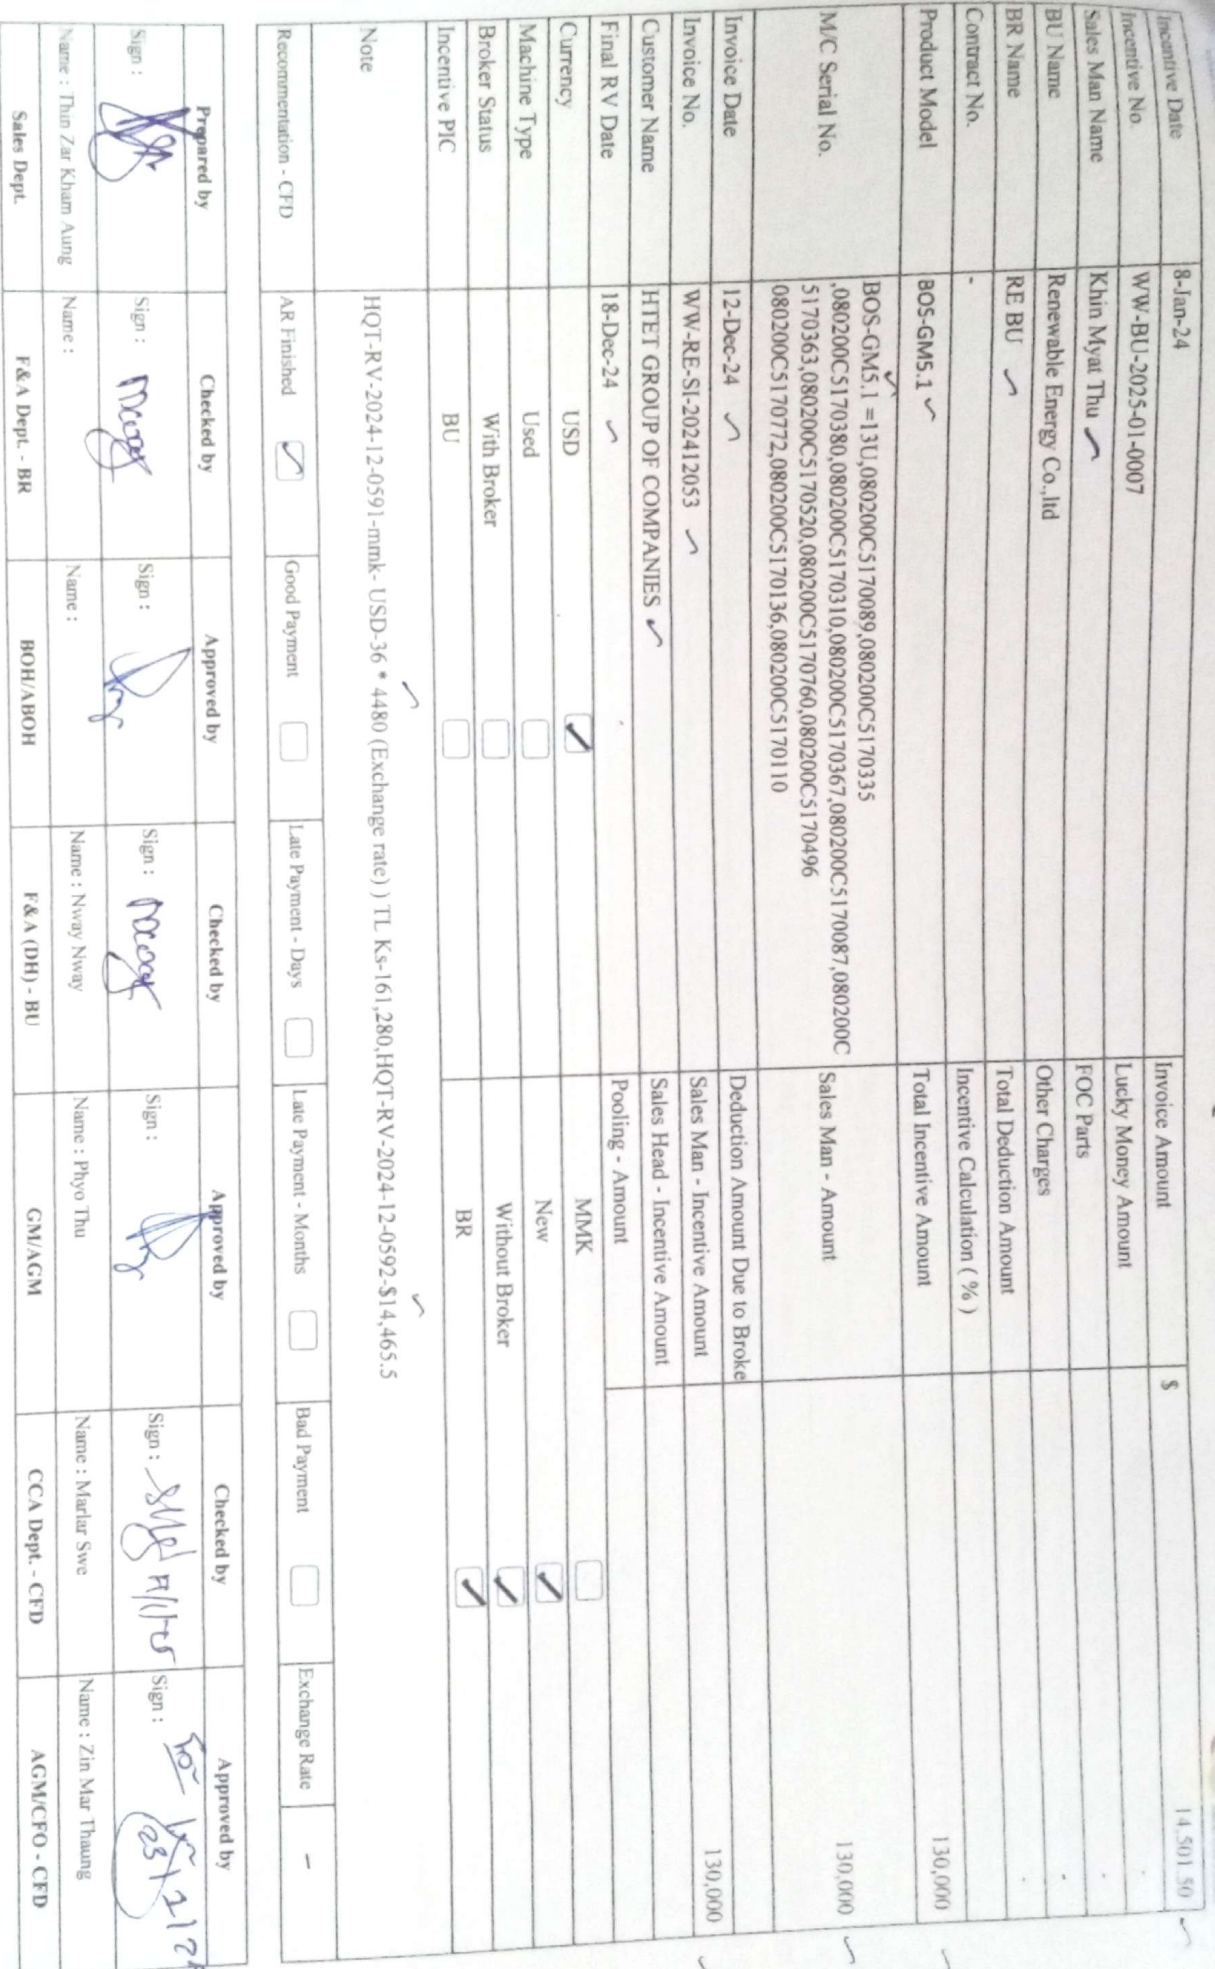 Incentive Date 8-Jan-24 Invoice Amount $ 14,501.50
Incentive No. WW-BU-2025-01-0007 Lucky Money Amount -
Sales Man Name Khin Myat Thu FOC Parts -
BU Name Renewable Energy Co.,ltd Other Charges -
BR Name RE BU Total Deduction Amount -
Contract No. - Incentive Calculation ( % )
Product Model BOS-GM5.1 Total Incentive Amount 130,000
M/C Serial No. BOS-GM5.1 =13U,080200C5170089,080200C5170335
,080200C5170380,080200C5170310,080200C5170367,080200C5170087,080200C
5170363,080200C5170520,080200C5170760,080200C5170496
080200C5170772,080200C5170136,080200C5170110
Sales Man - Amount 130,000
Invoice Date 12-Dec-24 Deduction Amount Due to Broke
Invoice No. WW-RE-SI-202412053 Sales Man - Incentive Amount 130,000
Customer Name HTET GROUP OF COMPANIES Sales Head - Incentive Amount
Final RV Date 18-Dec-24 Pooling - Amount
Currency USD MMK
Machine Type Used New
Broker Status With Broker Without Broker
Incentive PIC BU BR
Note HQT-RV-2024-12-0591-mmk- USD-36 * 4480 (Exchange rate) ) TL Ks-161,280,HQT-RV-2024-12-0592-$14,465.5
Recommentation - CFD AR Finished Good Payment Late Payment - Days Late Payment - Months Bad Payment Exchange Rate -
Prepared by Checked by Approved by Checked by Approved by Checked by Approved by
Sign : Sign : Sign : Sign : Sign : Sign : Sign : For
Name : Thin Zar Kham Aung Name : Name : Name : Nway Nway Name : Phyo Thu Name : Marlar Swe Name : Zin Mar Thaung
Sales Dept. F&A Dept. - BR BOH/ABOH F&A (DH) - BU GM/AGM CCA Dept. - CFD AGM/CFO - CFD